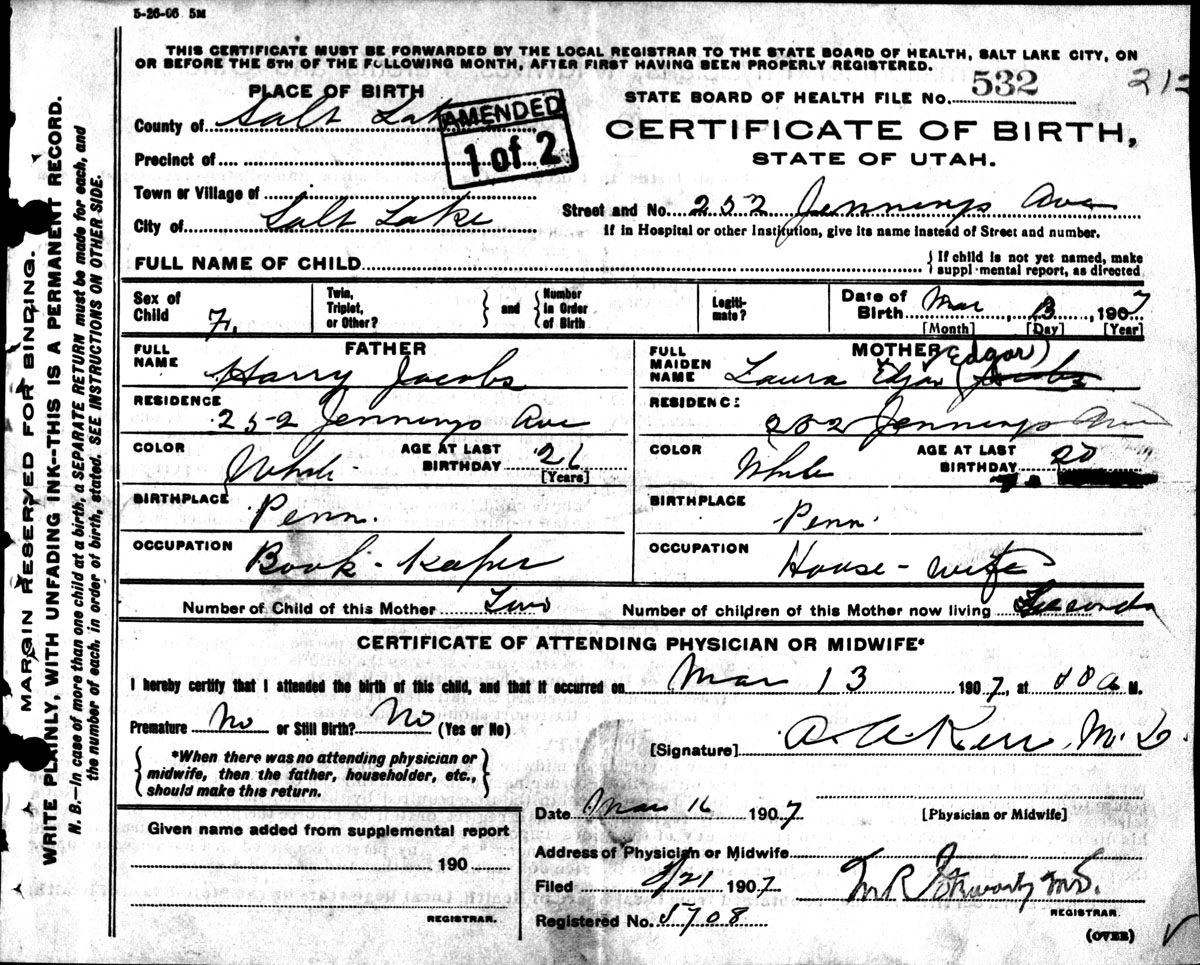 5-26-06 5M
THIS CERTIFICATE MUST BE FORWARDED BY THE LOCAL REGISTRAR TO THE STATE BOARD OF HEALTH, SALT LAKE CITY, ON
OR BEFORE THE 5TH OF THE FOLLOWING MONTH, AFTER FIRST HAVING BEEN PROPERLY REGISTERED.
PLACE OF BIRTH
STATE BOARD OF HEALTH FILE No. 532 212
County of Salt Lake
AMENDED
1 of 2
CERTIFICATE OF BIRTH,
STATE OF UTAH.
Precinct of
Town or Village of
City of Salt Lake
Street and No. 252 Jennings Ave
If in Hospital or other Institution, give its name instead of Street and number.
FULL NAME OF CHILD
If child is not yet named, make
suppl mental report, as directed
Sex of Child F.
Twin, Triplet, or Other?
and
Number in Order of Birth
Legiti-mate?
Date of Birth Mar 13, 1907
[Month] [Day] [Year]
FATHER
FULL NAME Harry Jacobs
RESIDENCE 252 Jennings Ave
COLOR White
AGE AT LAST BIRTHDAY 26
[Years]
BIRTHPLACE Penn.
OCCUPATION Book-keeper
MOTHER
FULL MAIDEN NAME Laura Edgar (Edgar)
RESIDENCE 252 Jennings Ave
COLOR White
AGE AT LAST BIRTHDAY 20
BIRTHPLACE Penn.
OCCUPATION House-wife
Number of Child of this Mother Two
Number of children of this Mother now living
CERTIFICATE OF ATTENDING PHYSICIAN OR MIDWIFE*
I hereby certify that I attended the birth of this child, and that it occurred on Mar 13 1907, at a M.
Premature No or Still Birth? No (Yes or No)
*When there was no attending physician or
midwife, then the father, householder, etc.,
should make this return.
[Signature] A. A. Kerr M.D.
Date Mar 16 1907
[Physician or Midwife]
Given name added from supplemental report
190
REGISTRAR.
Address of Physician or Midwife
Filed 3/21 1907 M.D.
REGISTRAR.
Registered No. 5708
(OVER)
MARGIN RESERVED FOR BINDING.
WRITE PLAINLY, WITH UNFADING INK--THIS IS A PERMANENT RECORD.
N. B.—In case of more than one child at a birth, a SEPARATE RETURN must be made for each, and
the number of each, in order of birth, stated. SEE INSTRUCTIONS ON OTHER SIDE.